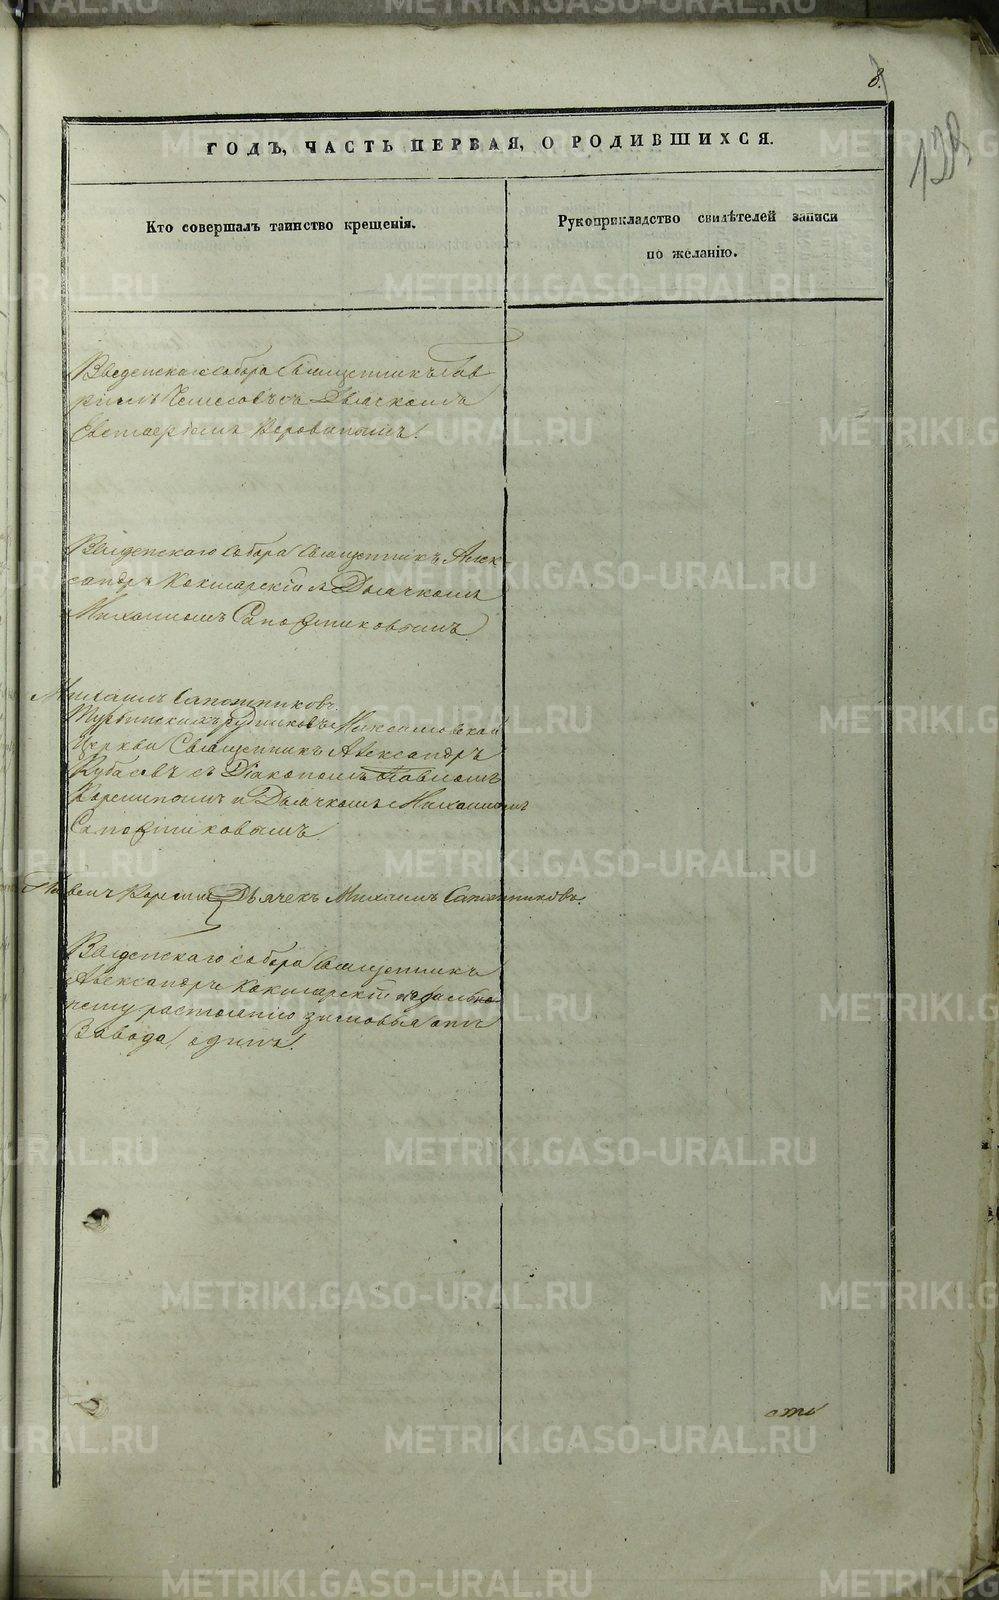 8.
139
ГОДЪ, ЧАСТЬ ПЕРВАЯ, О РОДИВШИХСЯ.
Кто совершалъ таинство крещенія.
Рукоприкладство свидѣтелей записи
по желанію.
Введенскаго Собора Священникъ Гав
рiилъ съ Дьякономъ
Введенскаго Собора Священникъ Алек
сандръ Кокшарскій съ Дьячкомъ
Михаиломъ Сапожниковымъ
Михаилъ Сапожниковъ.
рудниковъ Максимовской
Церкви Священникъ Александръ
Кубасовъ съ Діакономъ Павломъ
и Дьячкомъ Михаиломъ
Сапожниковымъ
Дьячекъ Михаилъ Сапожниковъ.
Введенскаго Собора Священникъ
Александръ Кокшарскій по дально
нему растоянію зимовья отъ
Завода, одинъ.
METRIKI.GASO-URAL.RU